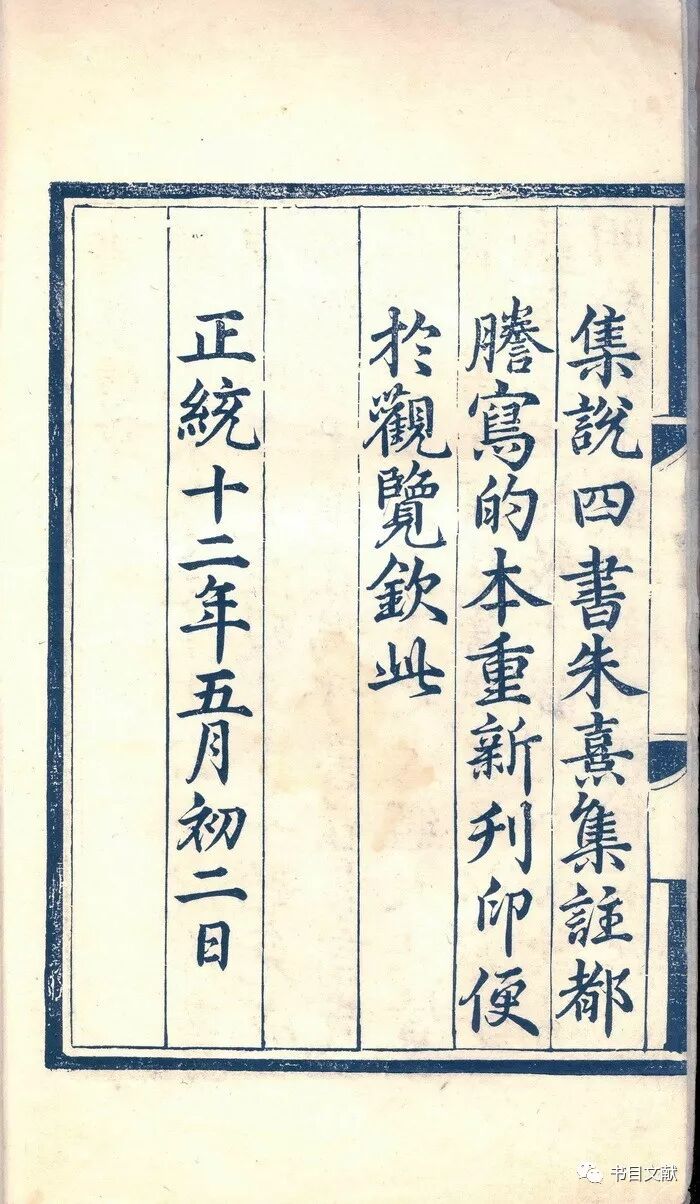 集說四書朱熹集註都
謄寫的本重新刋印便
於觀覽欽此
正統十二年五月初二日
书目文献